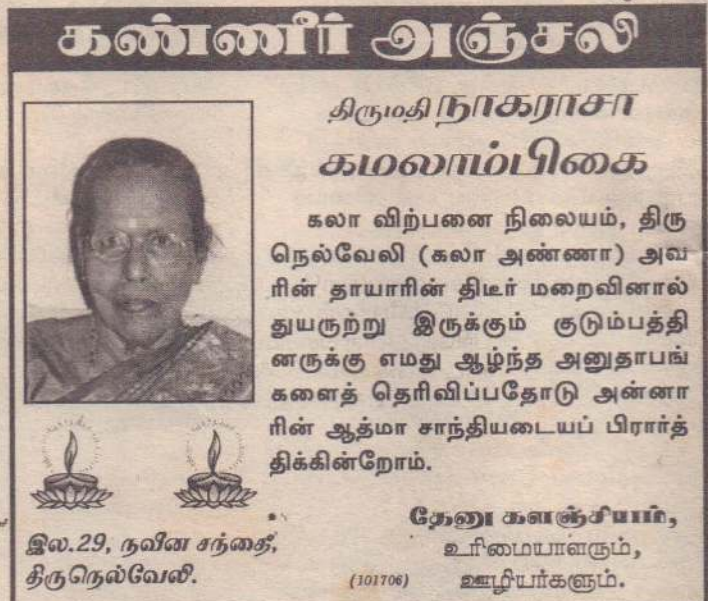 கண்ணீர் அஞ்சலி
திருமதி நாகராசா
கமலாம்பிகை
கலா விற்பனை நிலையம், திரு
நெல்வேலி (கலா அண்ணா) அவ
ரின் தாயாரின் திடீர் மறைவினால்
துயருற்று இருக்கும் குடும்பத்தி
னருக்கு எமது ஆழ்ந்த அனுதாபங்
களைத் தெரிவிப்பதோடு அன்னா
ரின் ஆத்மா சாந்தியடையப் பிரார்த்
திக்கின்றோம்.
தேனு களஞ்சியம்,
உரிமையாளரும்,
ஊழியர்களும்.
இல.29, நவீன சந்தை,
திருநெல்வேலி.
(101706)